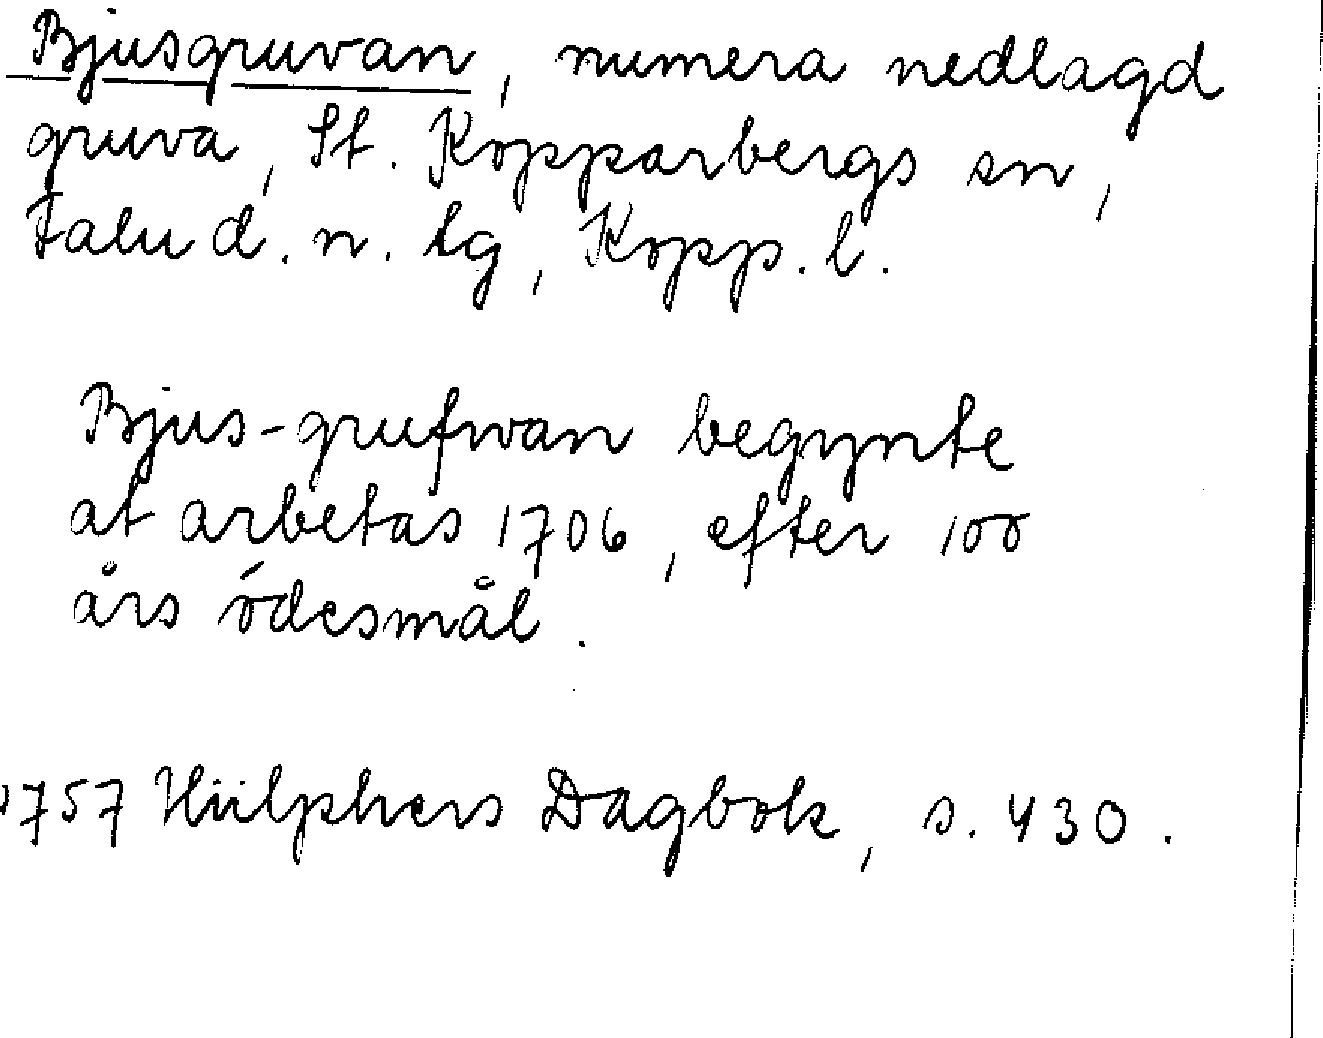 Bjusgruvan, numera nedlagd
gruva, St. Kopparbergs sn,
Falu d. n. lg, Kopp. l.
Bjus-grufwan begynte
at arbetas 1706, efter 100
års ödesmål.
1757 Hülphers Dagbok, s. 430.